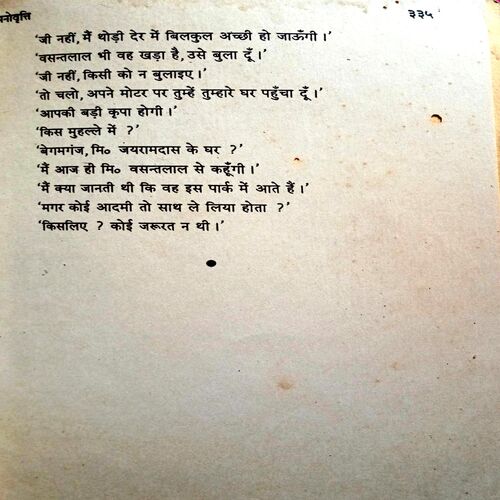 नोवृत्ति ३३५
‘जी नहीं, मैं थोड़ी देर में बिलकुल अच्छी हो जाऊँगी।’
‘वसन्तलाल भी वह खड़ा है, उसे बुला दूँ।’
‘जी नहीं, किसी को न बुलाइए।’
‘तो चलो, अपने मोटर पर तुम्हें तुम्हारे घर पहुँचा दूँ।’
‘आपकी बड़ी कृपा होगी।’
‘किस मुहल्ले में ?’
‘बेगमगंज, मि० जयरामदास के घर ?’
‘मैं आज ही मि० वसन्तलाल से कहूँगी।’
‘मैं क्या जानती थी कि वह इस पार्क में आते हैं।’
‘मगर कोई आदमी तो साथ ले लिया होता ?’
‘किसलिए ? कोई जरूरत न थी।’